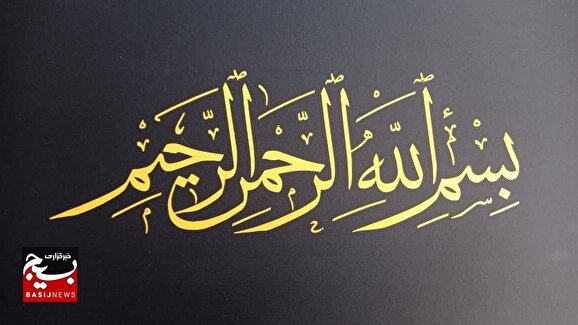 بِسْمِ ٱللَّهِ ٱلرَّحْمَٰنِ ٱلرَّحِيمِ
خبرگزاری
بسیج
BASIJNEWS